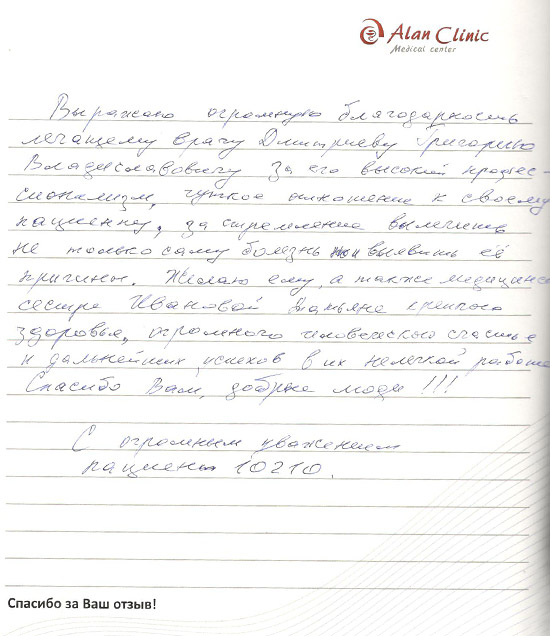 Alan Clinic
Medical center
Выражаю огромную благодарность
лечащему врачу Дмитриеву Григорию
Владиславовичу за его высокий профес-
сионализм, чуткое отношение к своему
пациенту, за стремление вылечить
не только саму болезнь но и выявить её
причины. Желаю ему, а также медицинс
сестре Ивановой Татьяне крепкого
здоровья, огромного человеческого счастья
и дальнейших успехов в их нелегкой работе
Спасибо Вам, добрые люди !!!
С огромным уважением
пациент 10210.
Спасибо за Ваш отзыв!